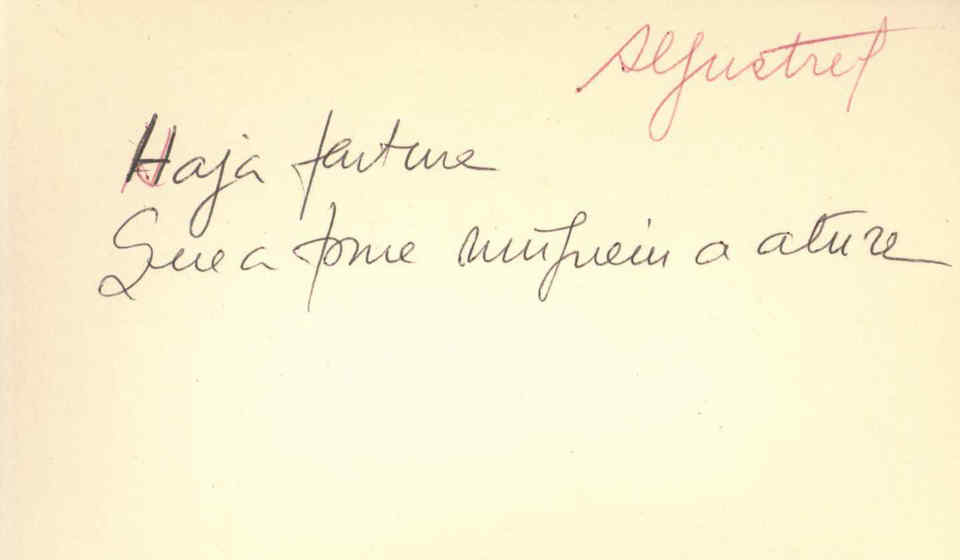 Aljustrel
Haja fartura
Que a fome ninguém a atura